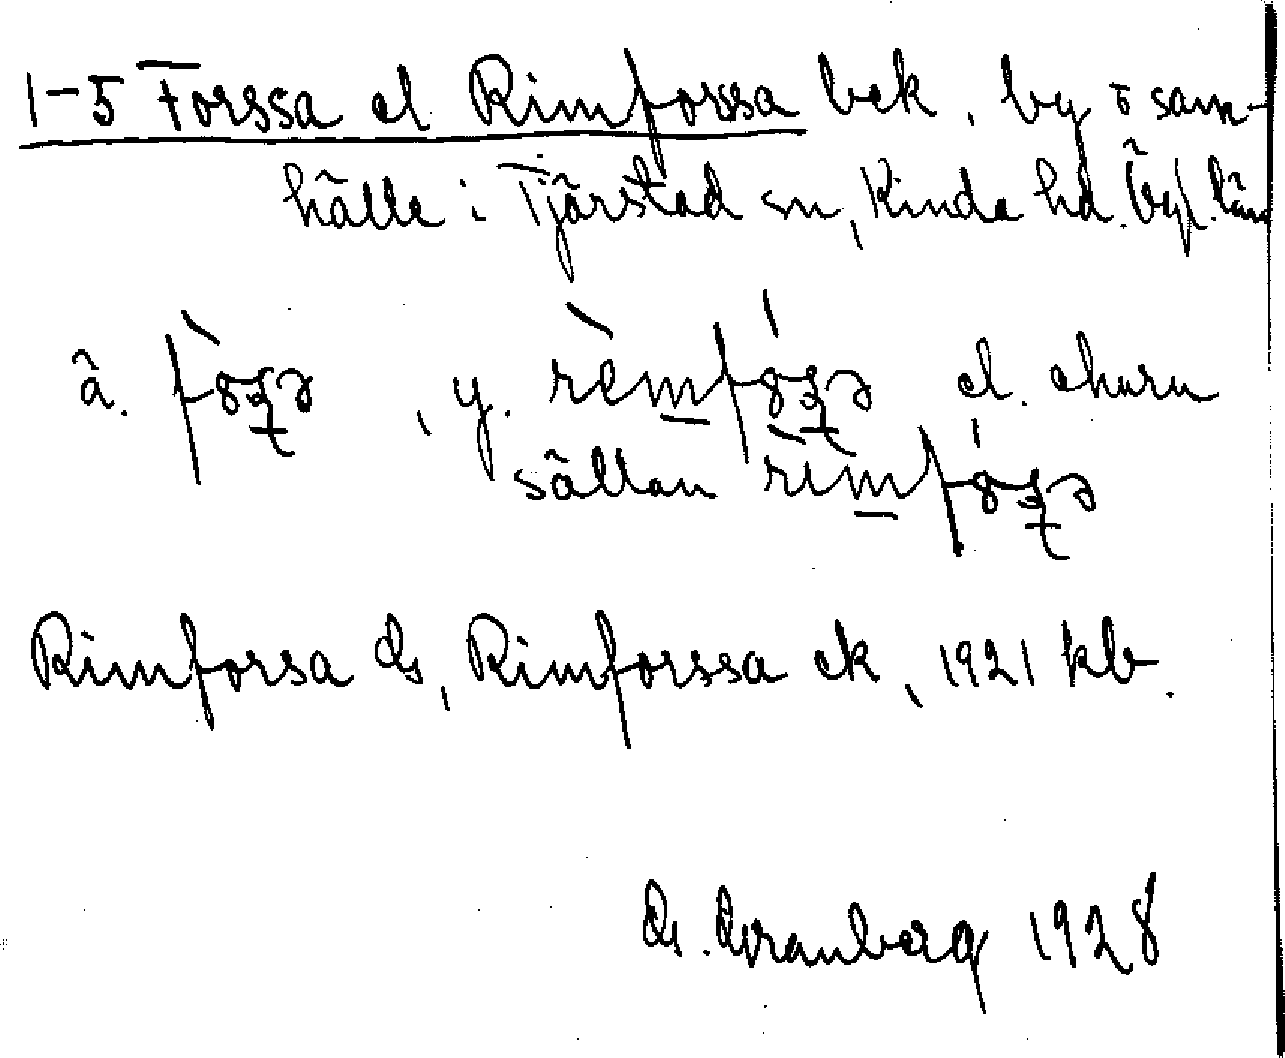 1-5 Forssa el Rimforssa bek. by o sam-
hälle i Tjärstad sn, Kinda hd. Ögl. län
ä. , y. el. ehuru
sällan
Rimforsa Gs, Rimforssa ek, 1921 kb.
G. Granberg 1928